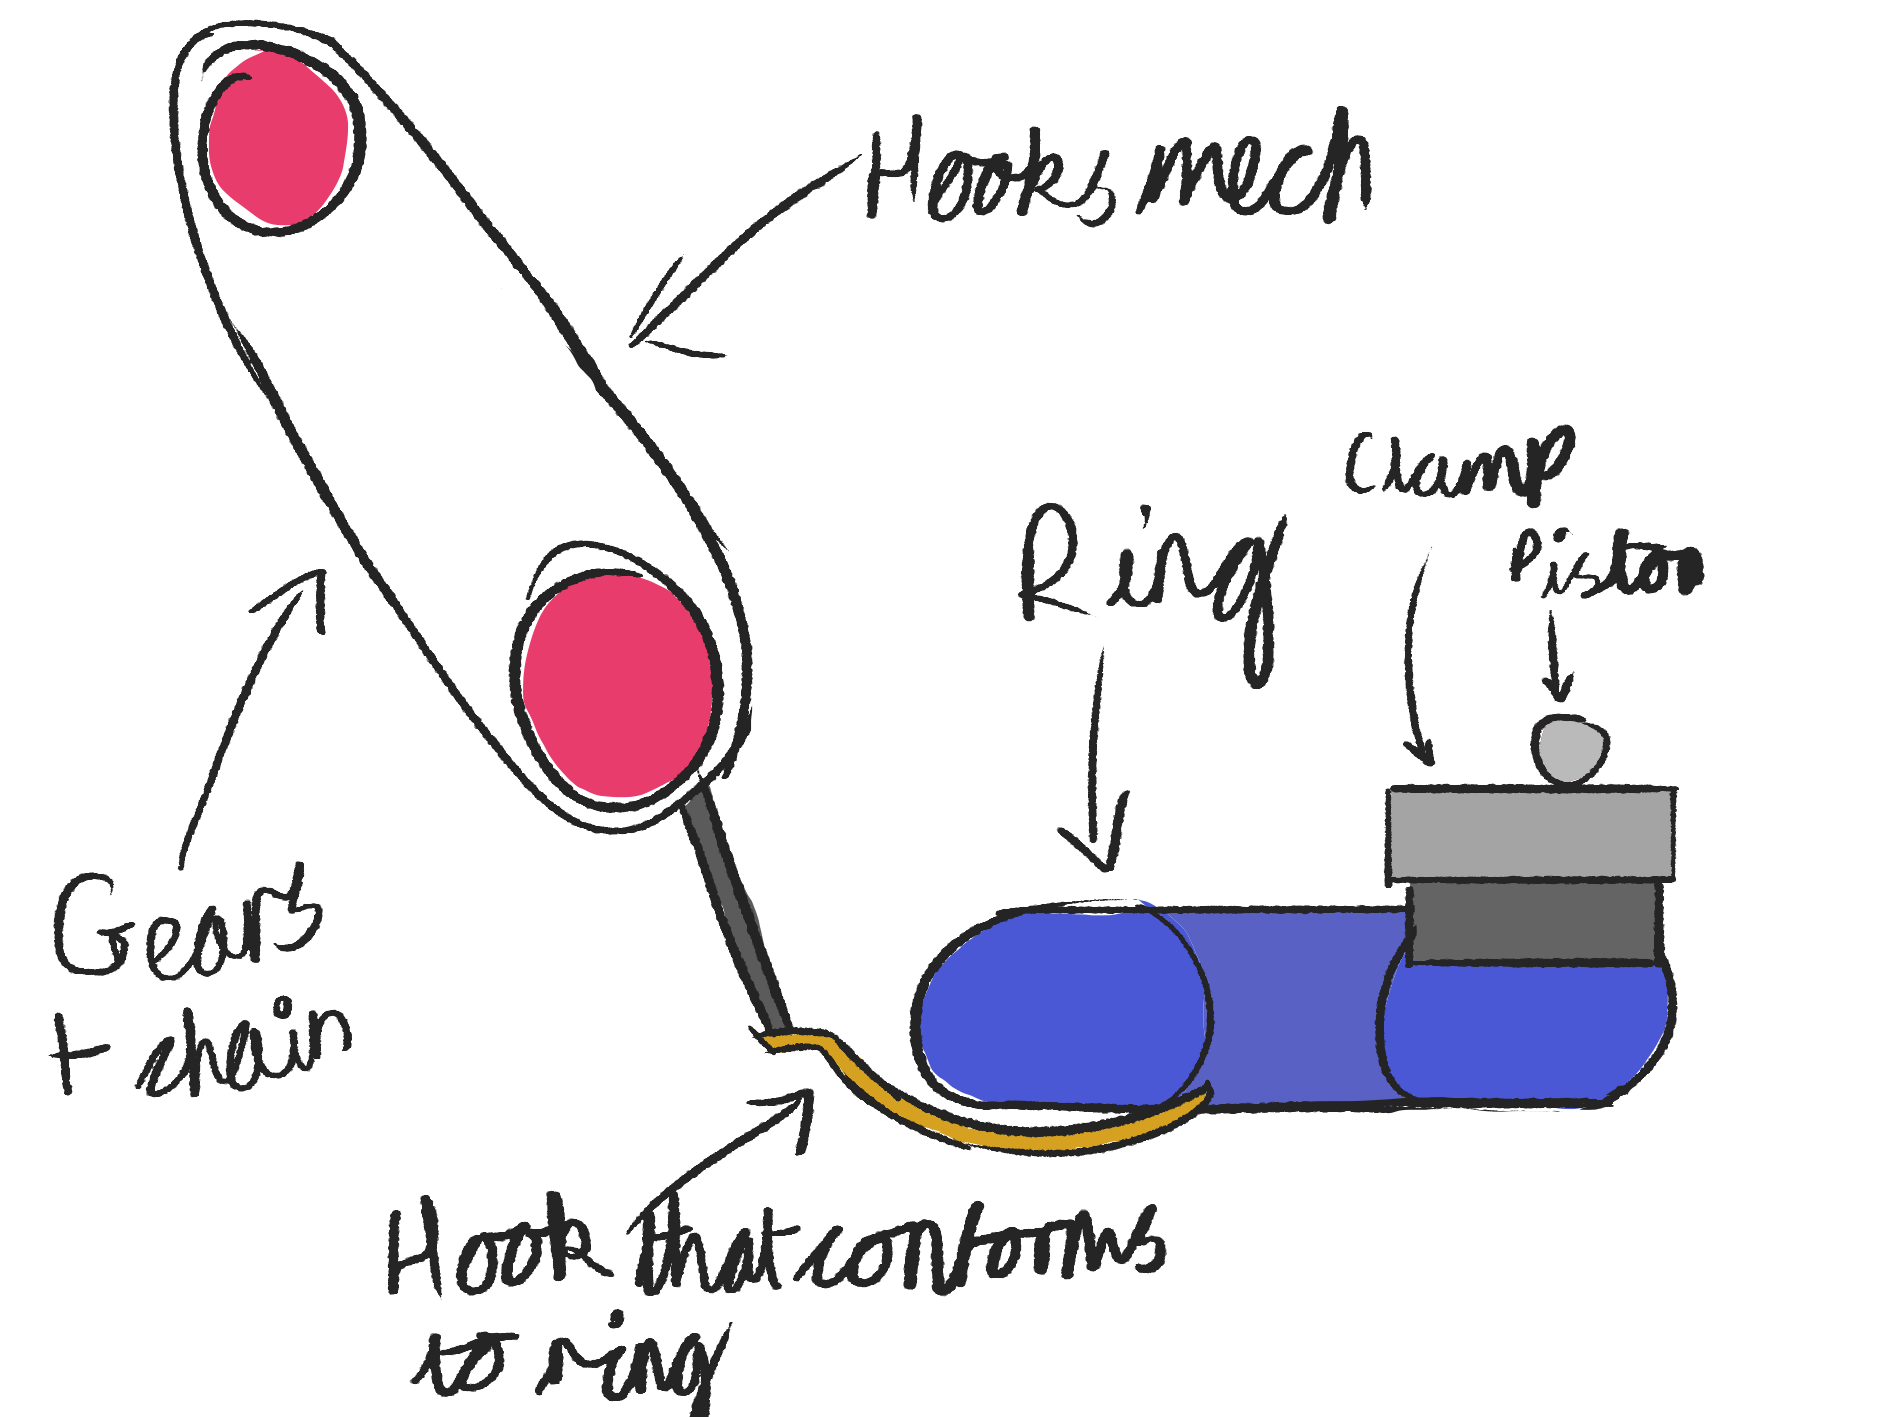 Hooks mech
Clamp
Piston
Ring
Gears
+ chain
Hook that conforms
to ring